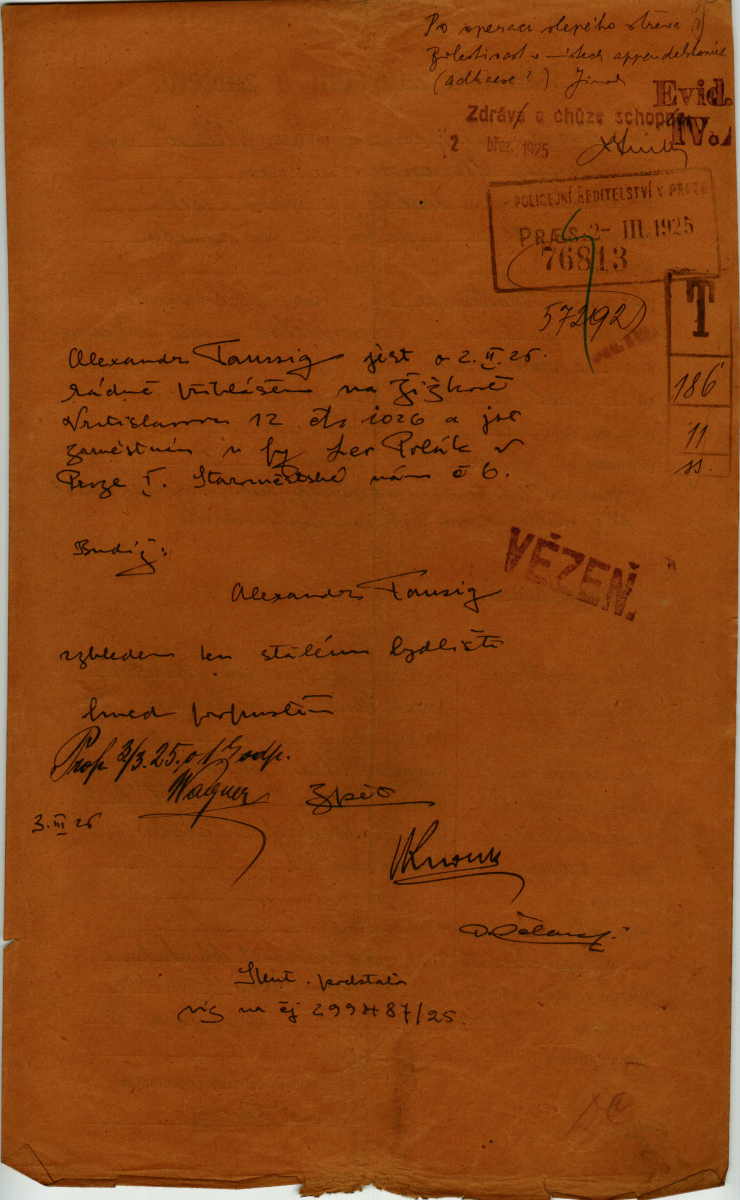 Po operaci slepého střeva
bolestivost v místech appendektomie
(adhese?) Jinak
Evid.
IV.
Zdráva a chůze schopna
2 břez. 1925
POLICEJNÍ ŘEDITELSTVÍ V PRAZE
PRÆS. 2- III. 1925
76813
57292
T
186
11
Alexandr Taussig jest o 2.II.25.
řádně přihlášen na Žižkově
Vratislavova 12 čp 1026 a jest
zaměstnán u fy Leo Polák v
Praze I. Staroměstské nám č 6.
Budiž:
VĚZEŇ.
Alexandr Taussig
vzhledem ku stálému bydlišti
hned propuštěn
Prop. 3/3.25. o 1 hodp.
Wagner
Zpět
3.III 25
Skut. podstata
viz na čj 299487/25.